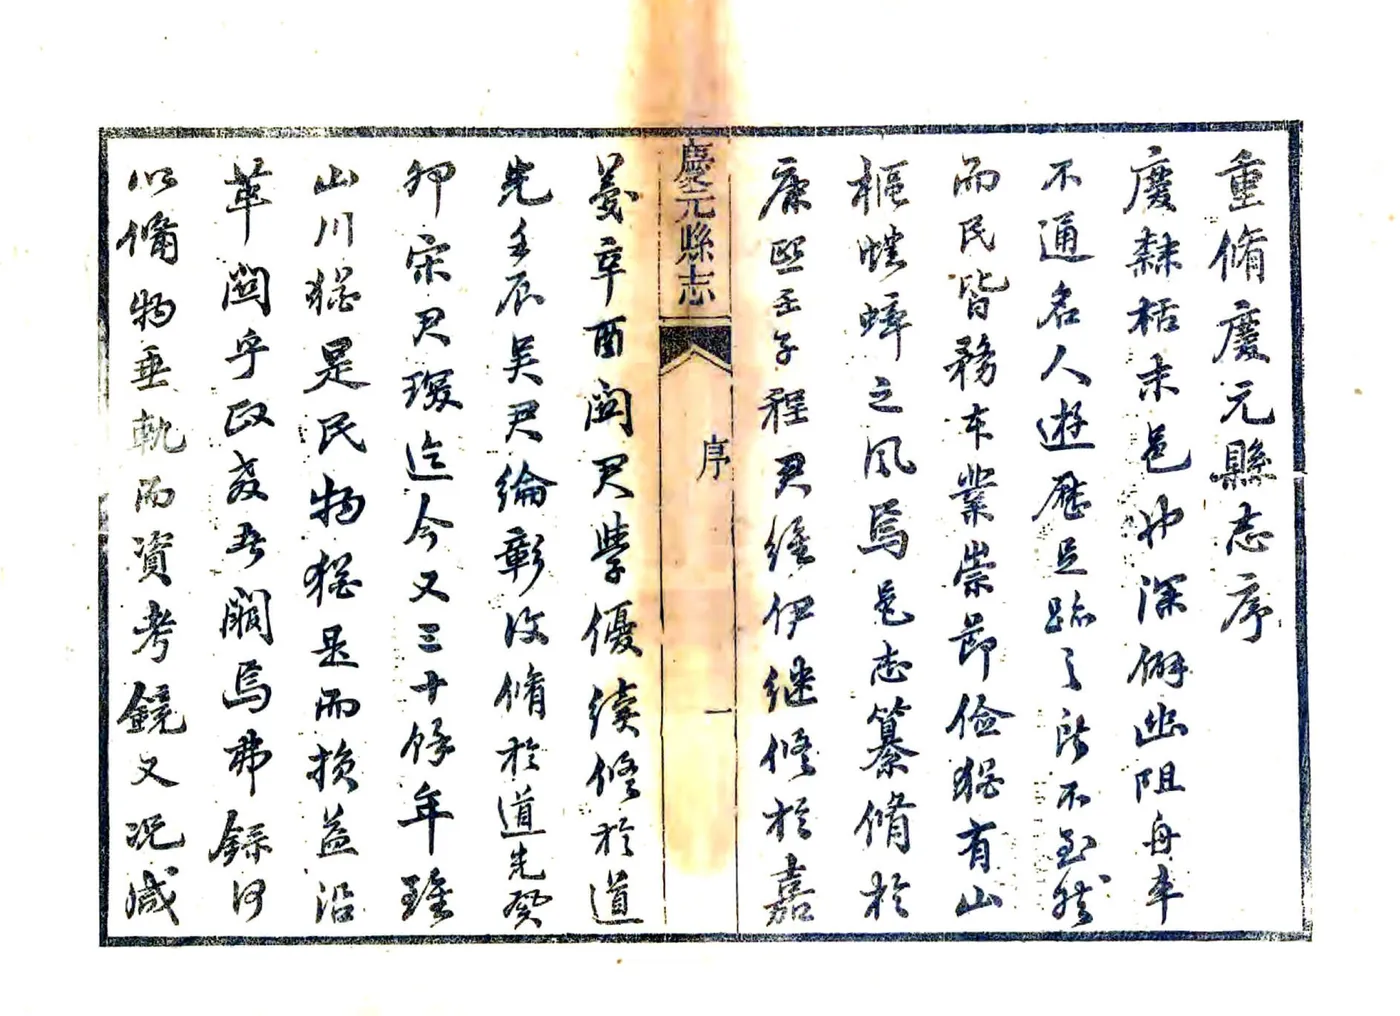 重脩慶元縣志序
慶隸栝末邑也深僻幽阻舟車
不通名人遊歷足跡之所不至然
而民皆務本業崇節儉猶有山
樞蟋蟀之風焉邑志纂脩於
康熙壬子程君維伊繼修於嘉
慶元縣志
序
一
慶辛酉關君學優續修於道
光壬辰吳君綸彰改脩於道光癸
卯宋君瑗迄今又三十餘年雖
山川猶是民物猶是而損益沿
革關乎政教者闕焉弗錄何
以備物垂軌而資考鏡又況咸